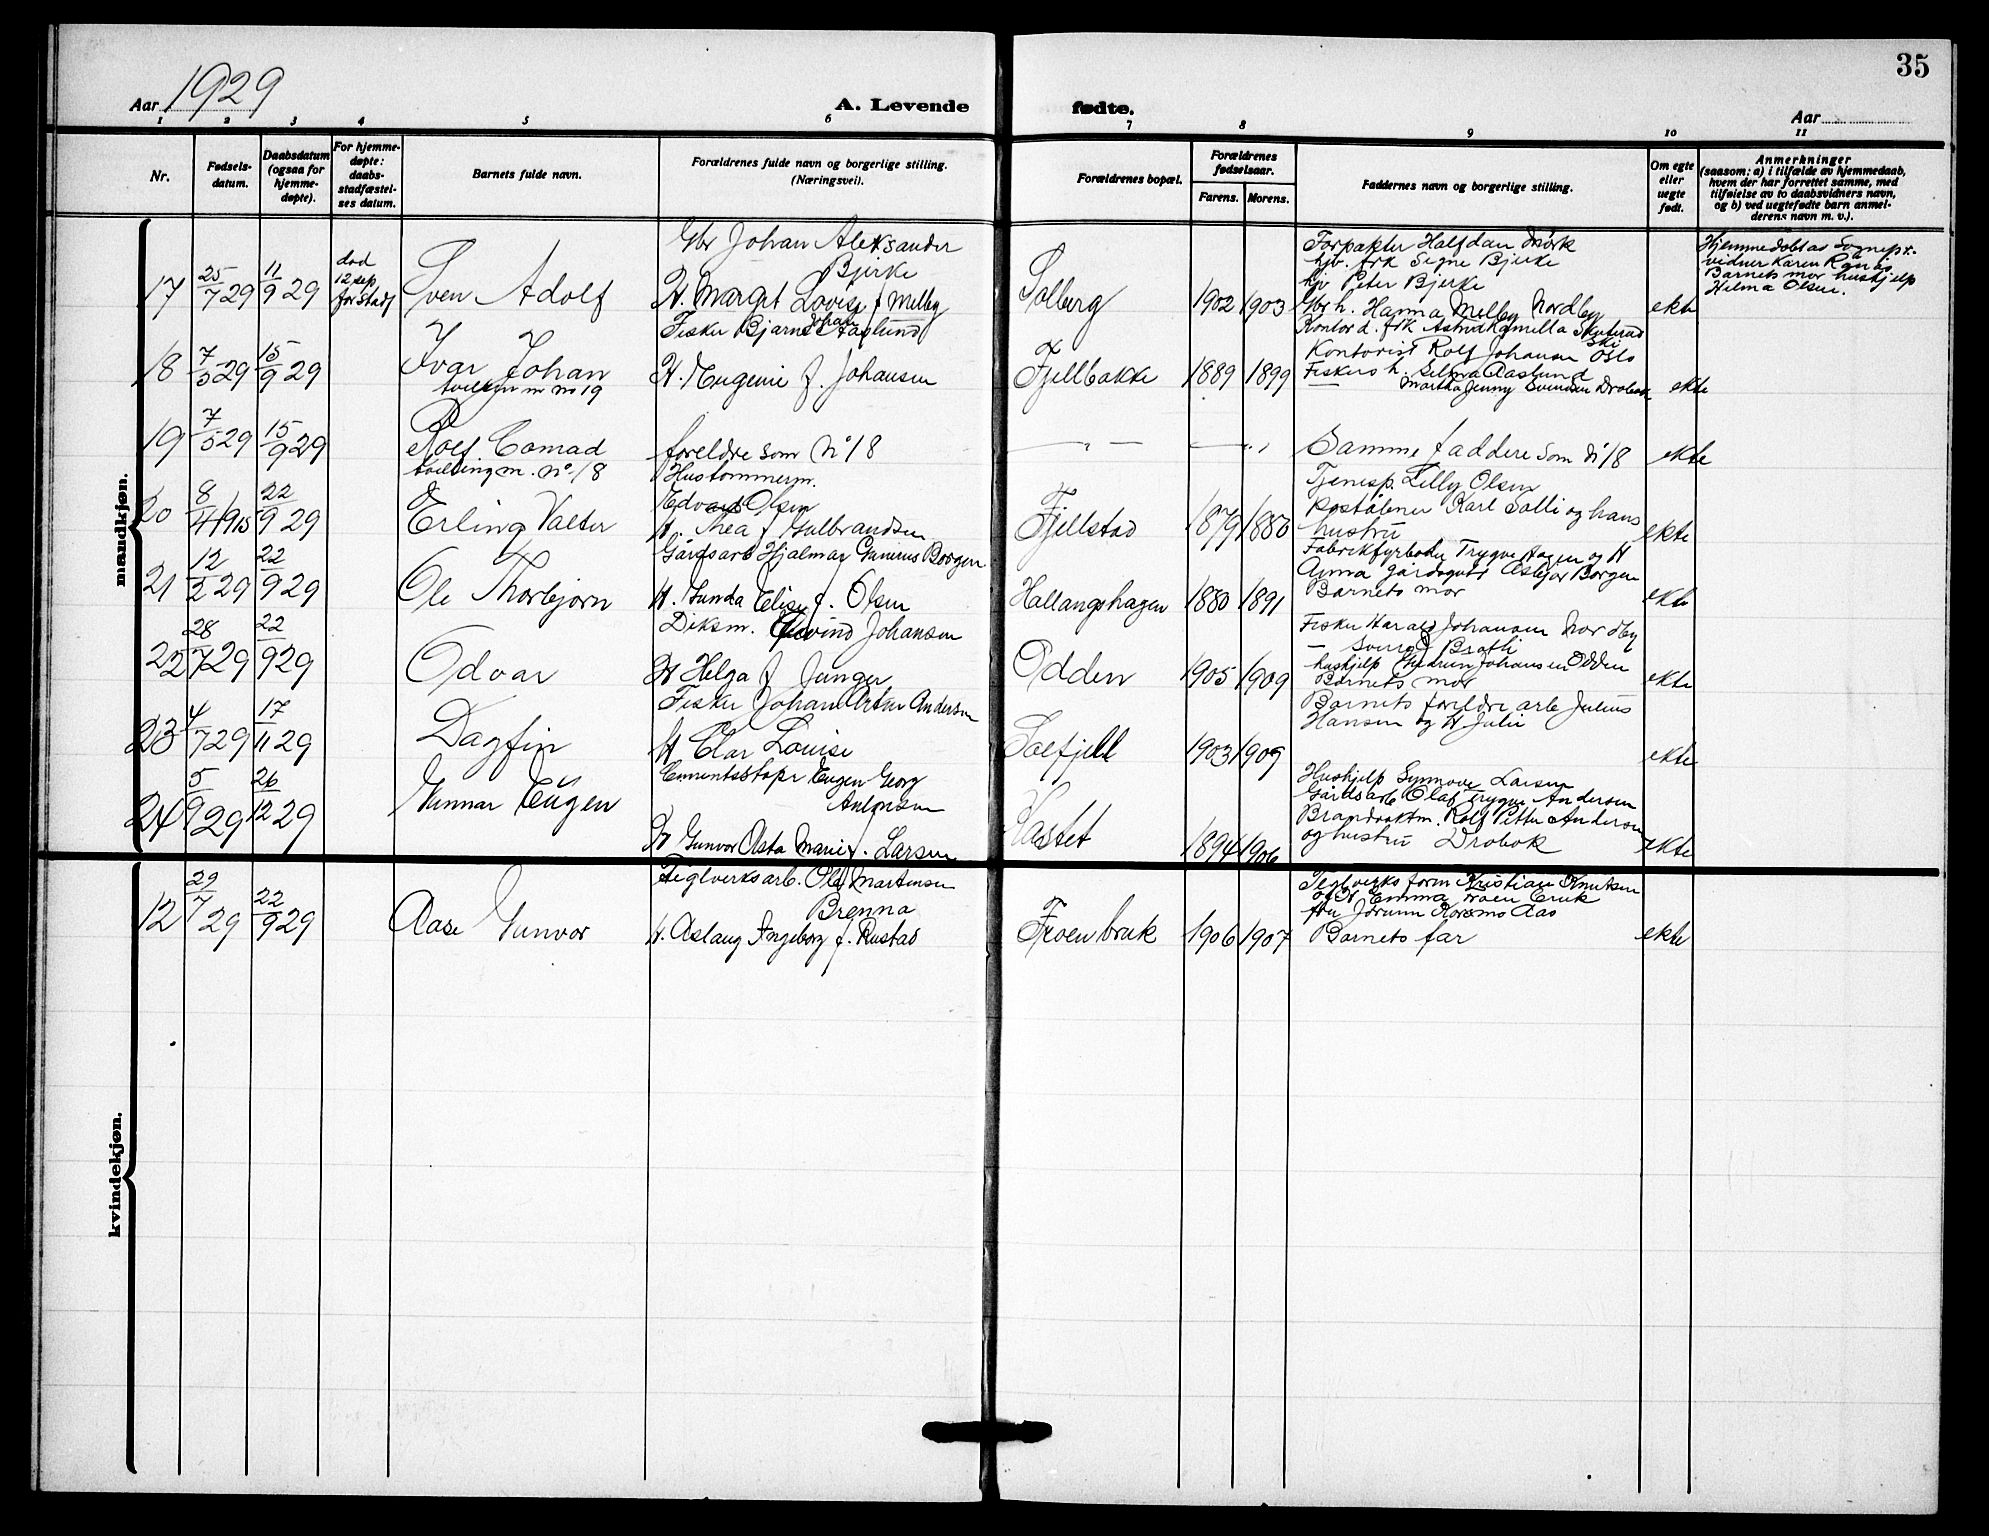 35
Aar 1929
A. Levende fødte.
Aar
1 2 3 4 5 6 7 8 9 10 11
Nr.
Fødsels-
datum.
Daabsdatum
(ogsaa for
hjemme-
døpte).
For hjemme-
døpte:
daabs-
stadfæstel-
ses datum.
Barnets fulde navn.
Forældrenes fulde navn og borgerlige stilling.
(Næringsvei).
Forældrenes bopæl.
Forældrenes
fødselsaar.
Farens. Morens.
Faddernes navn og borgerlige stilling.
Om egte
eller
uegte
født.
Anmerkninger
(saasom: a) i tilfælde av hjemmedaab,
hvem der har forrettet samme, med
tilføielse av to daabsvidners navn,
og b) ved uegtefødte barn anmel-
derens navn m. v.).
mandkjøn.
17
25/7 29
11/9 29
død
12 sep
før stadf
Sven Adolf
Gbr Johan Aleksander
Bjerke
H. Margit Lovise f Melby
Solberg
1902 1903
Forpakter Halfdan Mörk
hjv. frk Signe Bjerke
hjv Peter Bjerke
Gbr h. Hanna Melby Nordby
ekte
Hjemmedøbt as Sognepr.
vidner Karen
Barnets mor hushjelp
Helma Olsen.
18
7/5 29
15/9 29
Ivar Johan
tvilling m no 19
Fisker Bjarne Johan Aaslund
H. Eugenie f. Johansen
Fjellbakke
1889 1899
Kontord. frk Astrid Kamilla
Ski
Kontorist Rolf Johansen Oslo
Fiskers h. Selma Aaslund
— Martha Jenny Svendsen Drøbak
ekte
19
7/5 29
15/9 29
Rolf Conrad
tvilling m. No 18
foreldre som No 18
— „ —
Samme faddere som No 18
ekte
20
8/4 1915
22/9 29
Erling Valter
Hustømmerm.
Edvard Olsen
H. Thea f Gulbrandsen
Fjellstad
1879 1880
Tjenesp. Lilly Olsen
Poståbner Karl Solli og hans
hustru
ekte
21
12/2 29
22/9 29
Ole Thorbjørn
Gårdsarb Hjalmar Gunerius Borgen
H. Gunda Elise f. Olsen
Hallangshagen
1880 1891
Fabrikfyrbøter Trygve Aagen og H
Anna gårdsgutt Asbjør Borgen
Barnets mor
ekte
22
28/7 29
22/9 29
Odvar
Diksm. Eivind Johansen
H Helga f Junger
Odden
1905 1909
Fisker Harald Johansen Nordby
— Sverre Bråthe
hushjelp Gudrun Johansen Odden
Barnets mor
ekte
23
4/7 29
17/11 29
Dagfin
Fisker Johan Artur Andersen
H Clar Louise
Solfjell
1903 1909
Barnets foreldre arb Julius
Hansen og H Julie
ekte
24
5/9 29
26/12 29
Gunnar Eugen
Cementstøper Eugen Georg
Antonsen
H Gunvor Asta Marie f. Larsen
Hastet
1894 1906
Hushjelp Synnøve Larsen
Gårdsarb Olaf Trygve Andersen
Brandvaktm. Rolf Petter Andersen
og hustru Drøbak
ekte
kvindekjøn.
12
29/7 29
22/9 29
Aase Gunvor
Teglverksarb. Ole Martinsen
Brenna
H. Aslaug Ingeborg f. Rustad
Froen bruk
1906 1907
Teglverksform Kristian Knutsen
og H Emma Froen Bruk
fru Jörunn Korsmo Aas
Barnets far
ekte